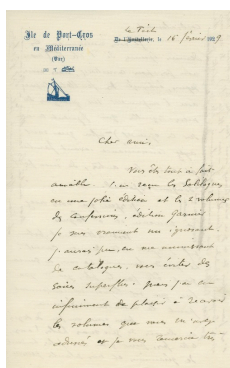 Ile de Port-Cros
en Méditerranée
(Var)
le 16 février 1929
Cher ami,
Vous êtes tout à fait
aimable. J'ai reçu les Soliloques
en une jolie édition et les 2 volumes
des Confessions, édition Garnier
je me
j'aurais pu, en me
ce catalogue, vous éviter des
soins superflus. mais j'ai eu
infiniment de plaisir à recevoir
les volumes que vous m'avez
et je vous remercie très